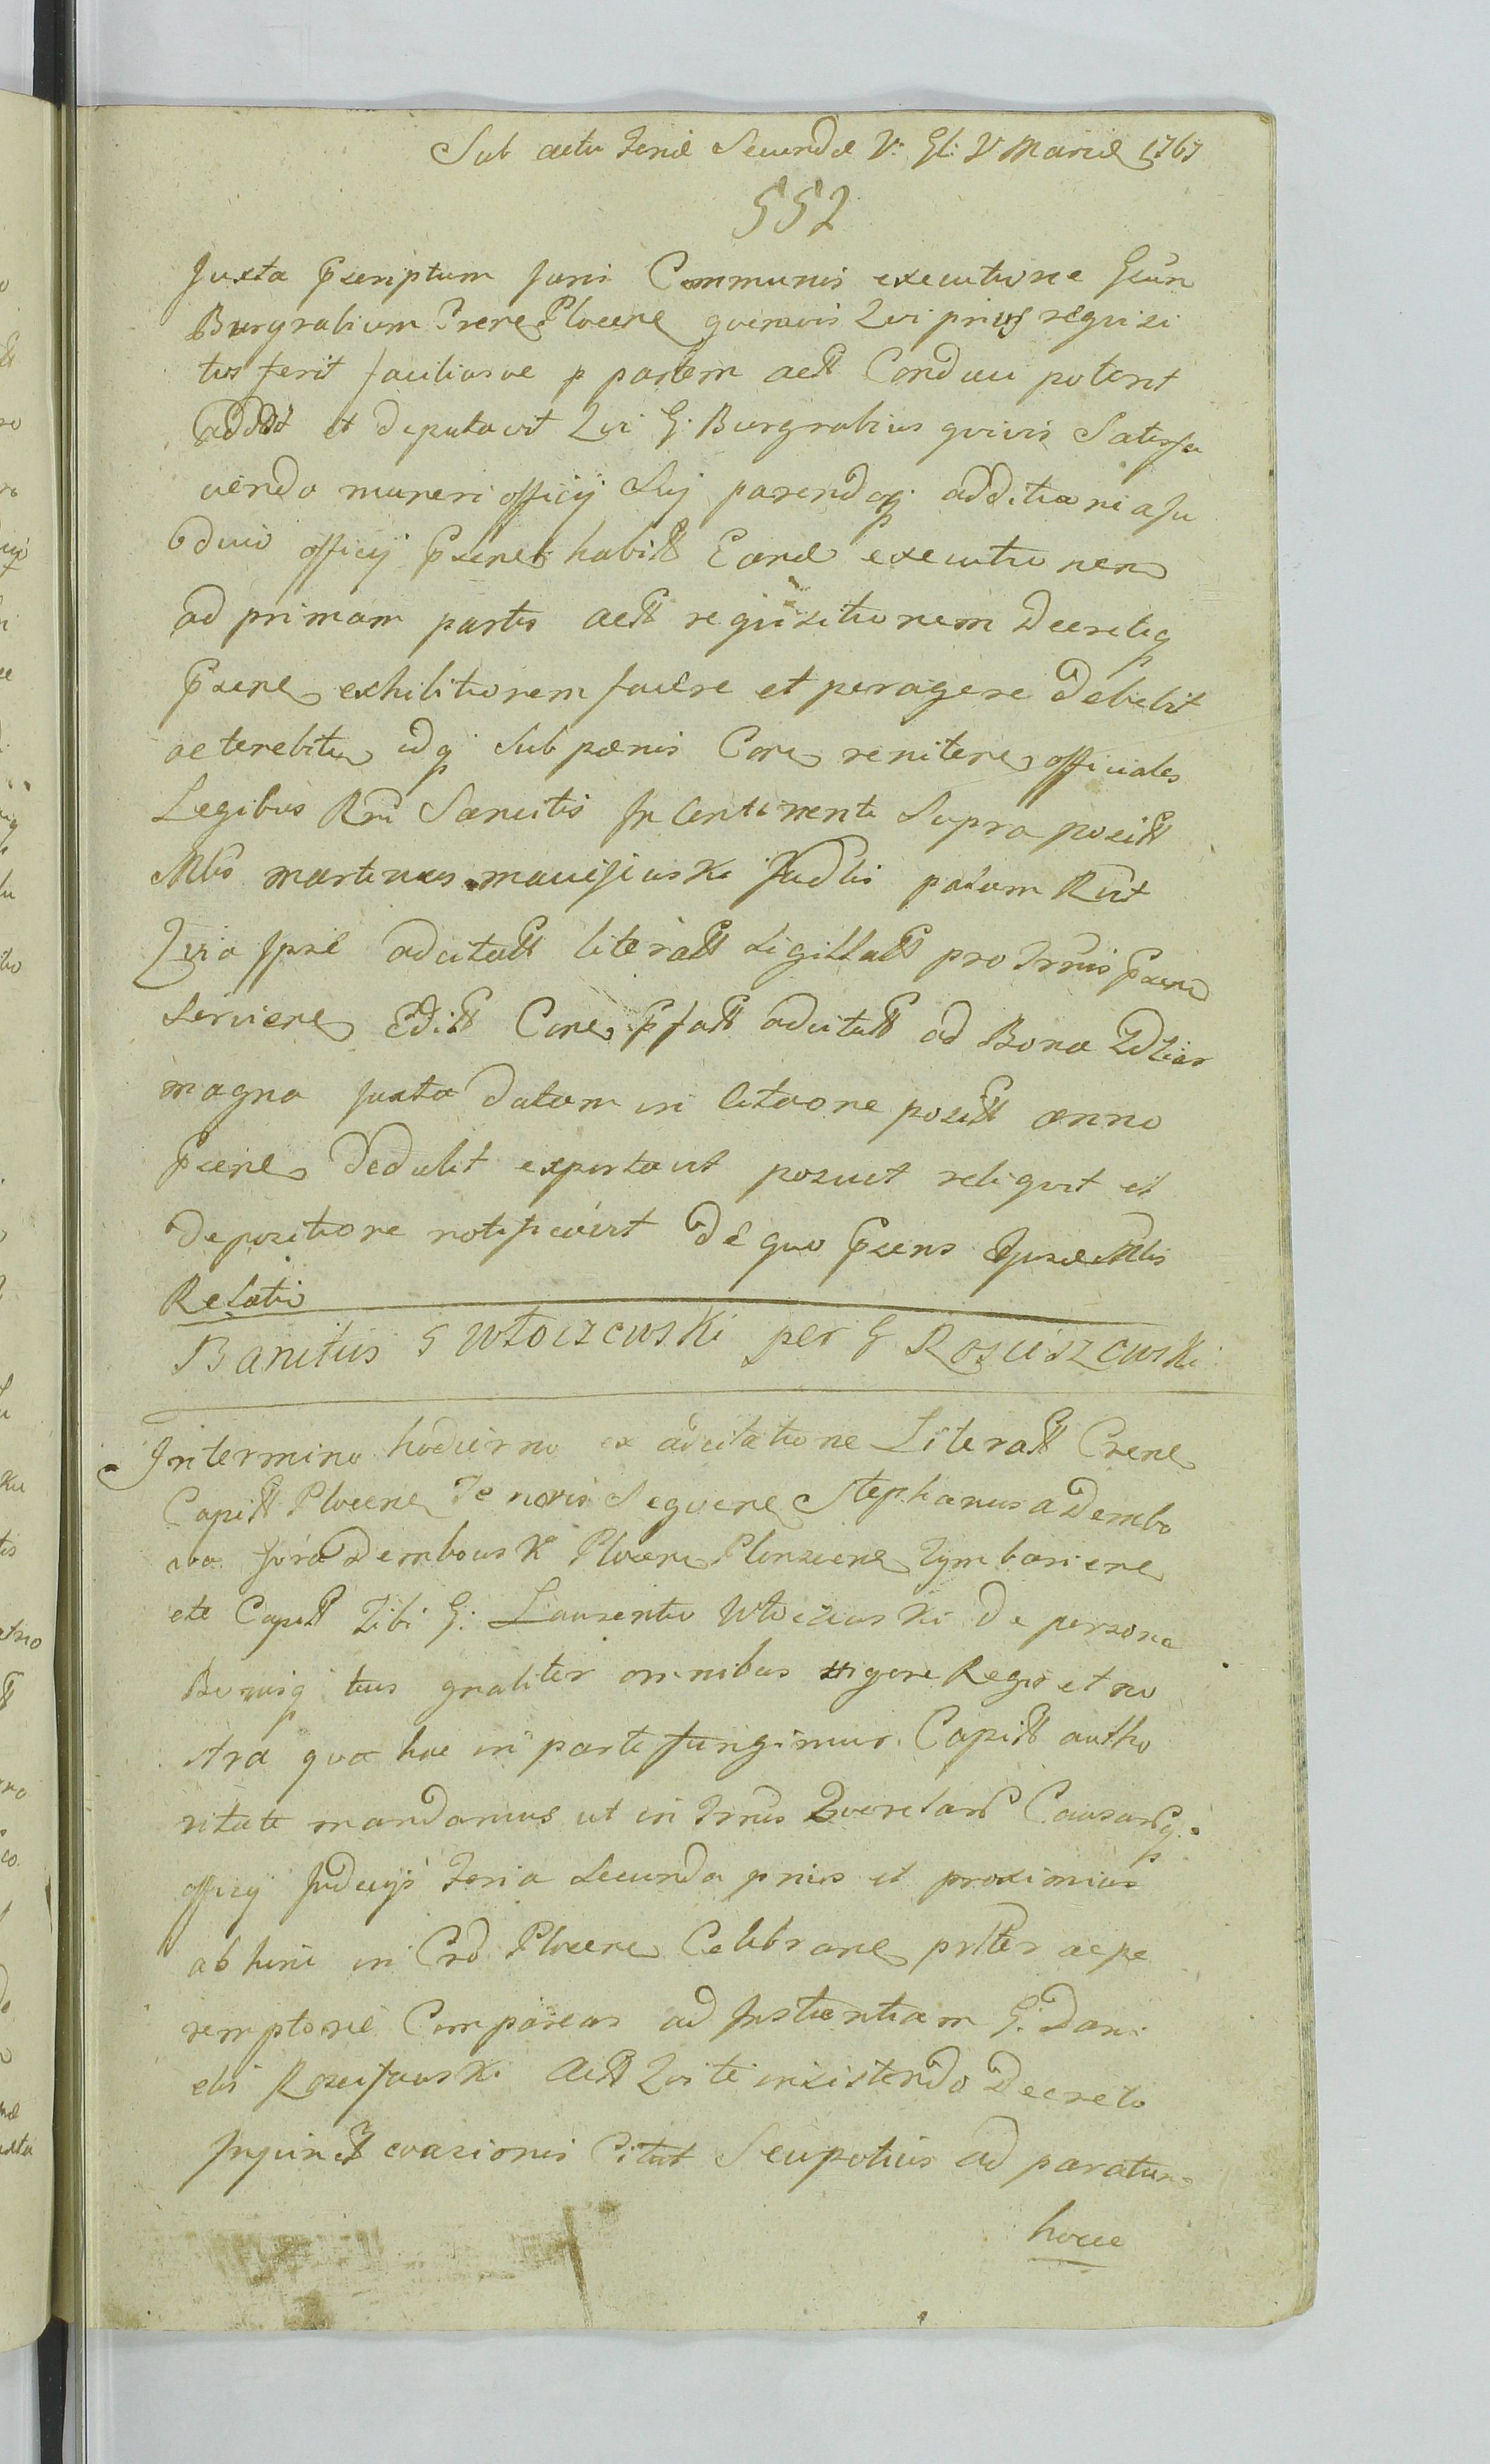 Sub actu Feriæ Secundæ V: Gl: V: Mariæ 1767
552
Juxta Pscriptum juris Communis executione Gsun
Burgrabium Crens Plocens quemvis Qui prius requisi
tus ferit faciliusve p partem actt Conduci poterit
addit et deputavit Qui G: Burgrabius quivis Satisfa
ciendo muneri officij Suj parendoq additioni a Ju
dicio officij Psens habitt Eand executionem
ad primam partis actt requisitionem Decretiq
Psens exhibitionem facere et peragere debebit
ac tenebitur idq sub pænis Contra renitens officiales
Legibus Rni Sancitis In Continenti Supra positt
Mlis Martinus Maciejewski Judlis palam Rvit
Quia Ipse adcitatt literatt sigillatt pro Trnis Psens
serviens Editt Contra Pfatt adcitatt ad Bona Zdziar
magna juxta datam in Citaone positt anno
Psens Dedulit exportavit posuit reliquit et
depositione notificavit de quo Psens Ipsius Mlis
Relatio
Banitus G Włoczewski per G Rosciszewski
In termino hodierno ex adcitatione Literatt Crens
Capitt Plocens Te noris Sequens Stephanus a Dembo
wa Góra Dembowski Plocens Plonscens Tymbarscens
etc Capitt Tibi G: Laurentio Włoczewski de persona
Bonisq tuis gnaliter omnibus vigore Regia et no
stra qua hac in parte fungimur Capitt autho
ritate mandamus ut in Trnis Querelar Causarq
officij Judicijs Feria secunda prius et proximius
ab hinc in Crd Plocens Celebrans pnlter ac pe
remptorie Compareas ad Instantiam G: Dani
elis Rosciszewski Actt Qui te insistendo Decreto
Injunctt evasionis Citat Seu potius ad paratum
hocce